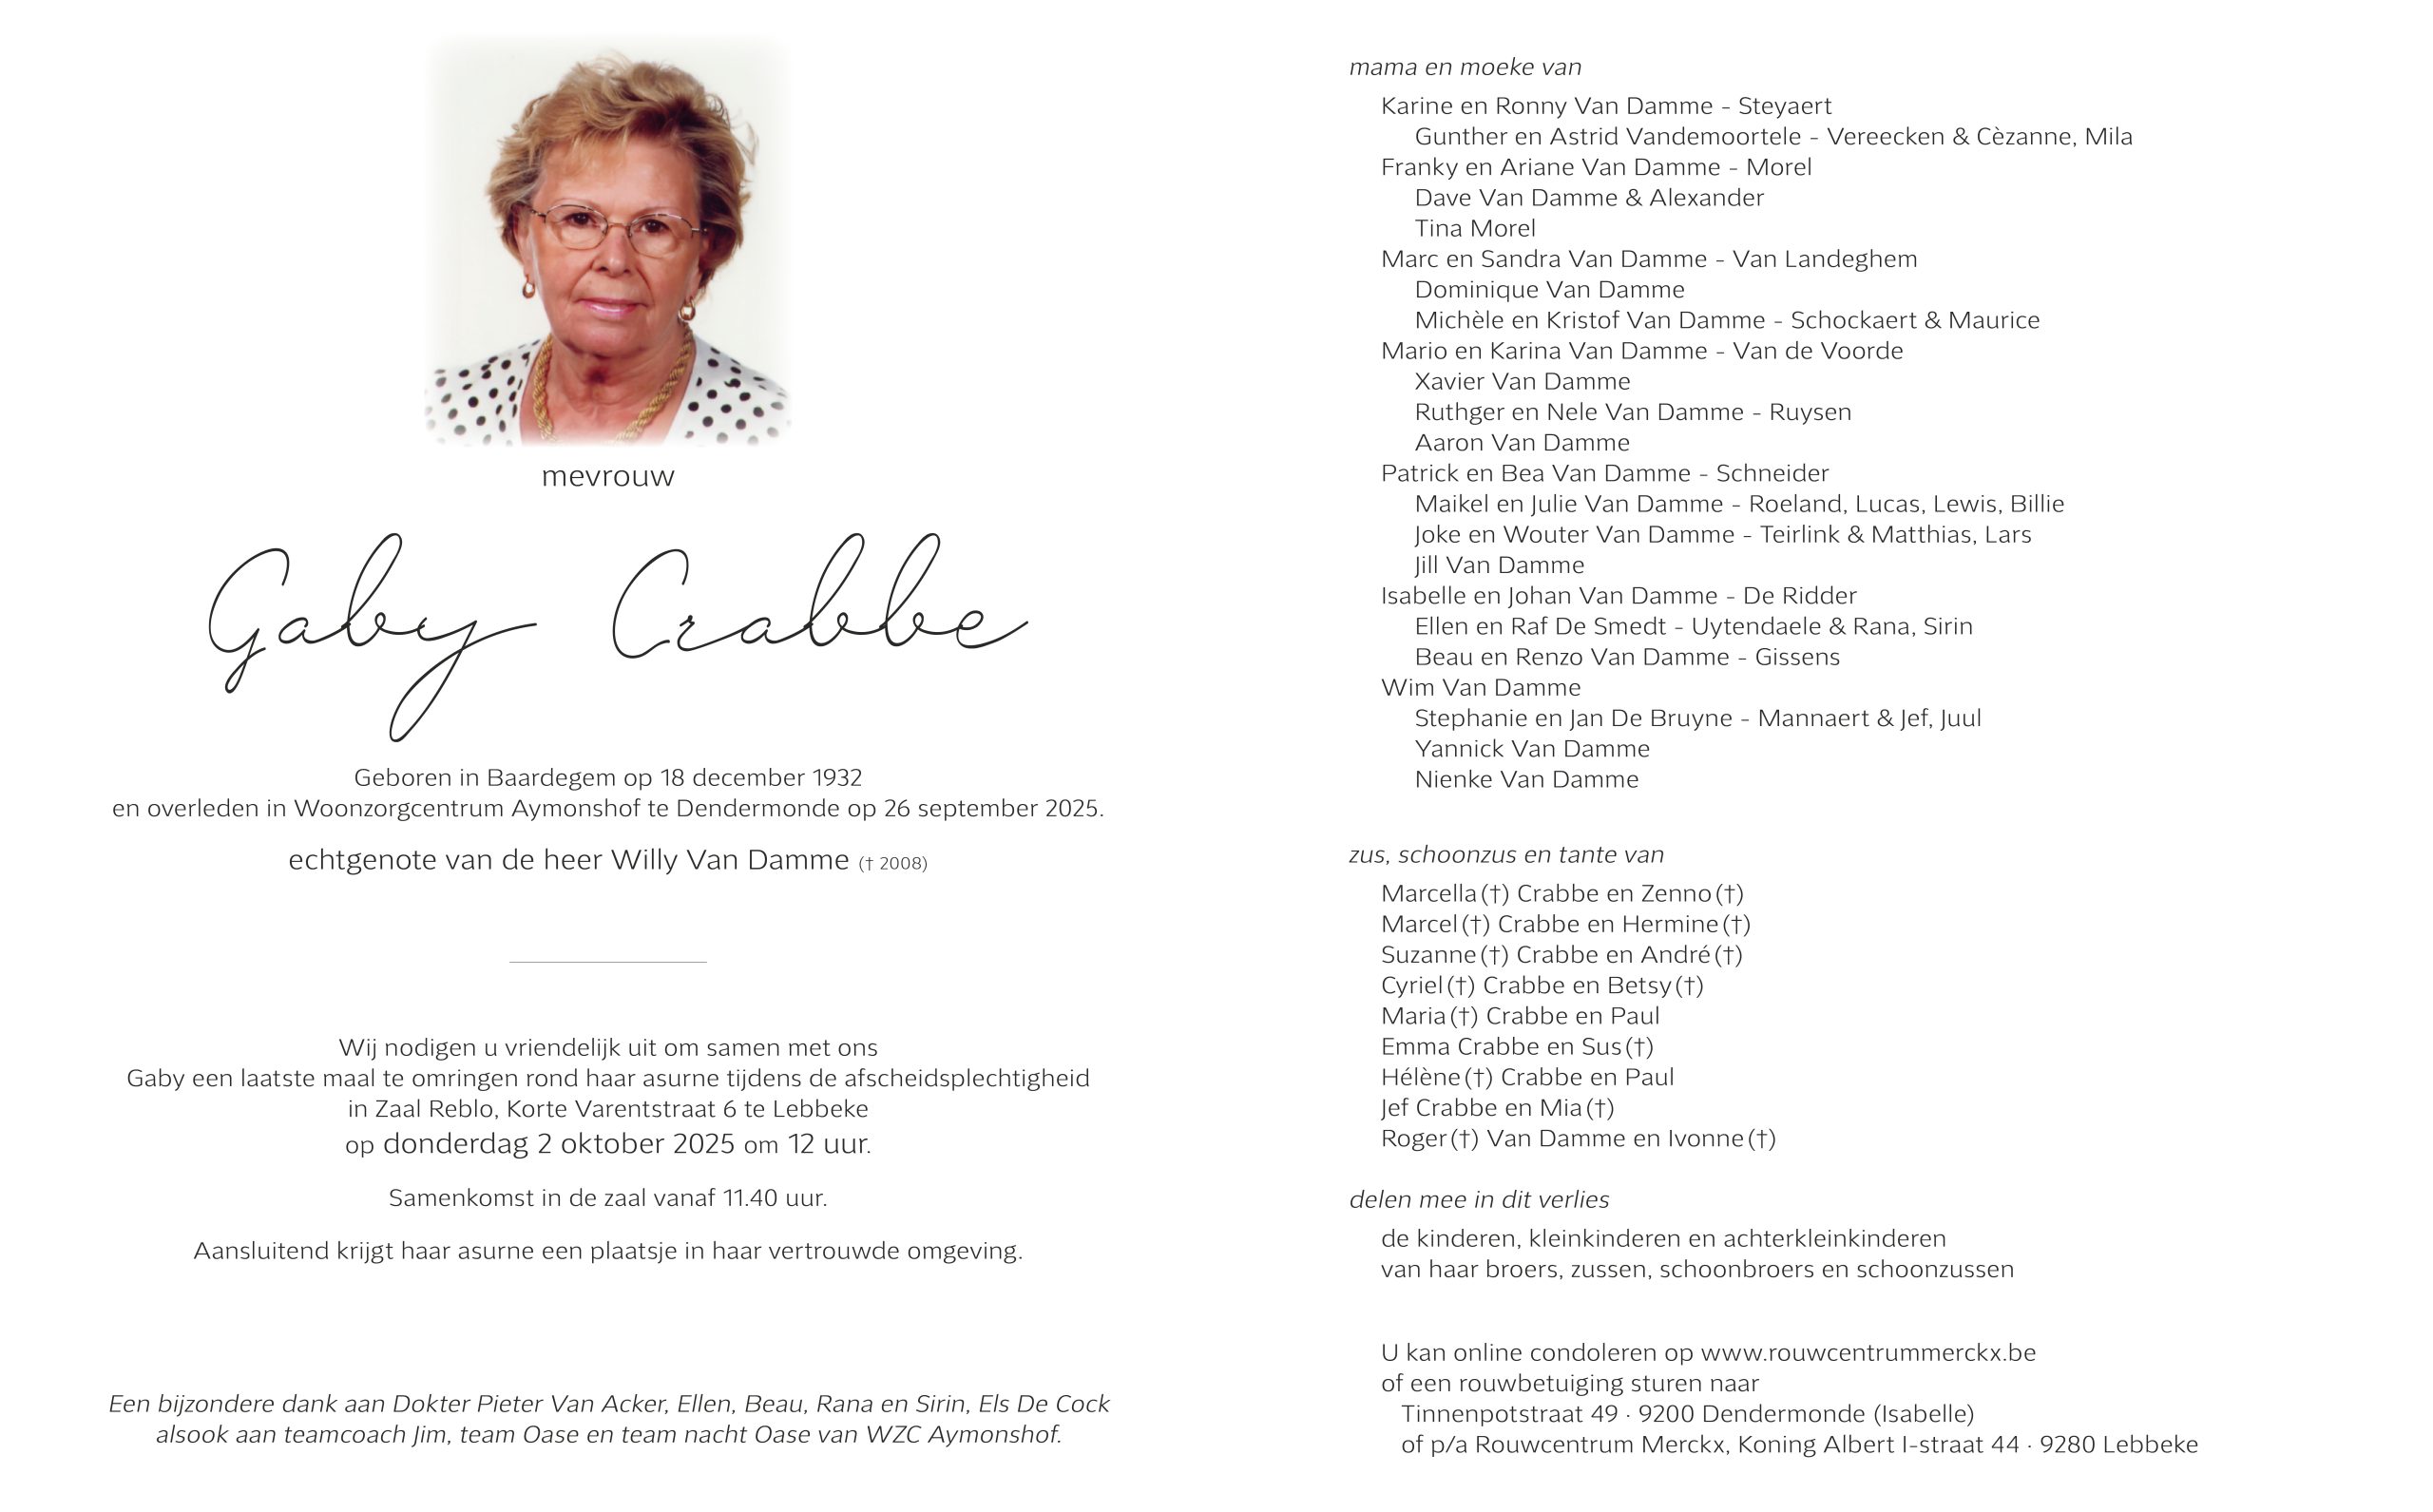 mevrouw
Gaby Crabbe
Geboren in Baardegem op 18 december 1932
en overleden in Woonzorgcentrum Aymonshof te Dendermonde op 26 september 2025.
echtgenote van de heer Willy Van Damme († 2008)
Wij nodigen u vriendelijk uit om samen met ons
Gaby een laatste maal te omringen rond haar asurne tijdens de afscheidsplechtigheid
in Zaal Reblo, Korte Varentstraat 6 te Lebbeke
op donderdag 2 oktober 2025 om 12 uur.
Samenkomst in de zaal vanaf 11.40 uur.
Aansluitend krijgt haar asurne een plaatsje in haar vertrouwde omgeving.
Een bijzondere dank aan Dokter Pieter Van Acker, Ellen, Beau, Rana en Sirin, Els De Cock
alsook aan teamcoach Jim, team Oase en team nacht Oase van WZC Aymonshof.
mama en moeke van
Karine en Ronny Van Damme - Steyaert
Gunther en Astrid Vandemoortele - Vereecken & Cèzanne, Mila
Franky en Ariane Van Damme - Morel
Dave Van Damme & Alexander
Tina Morel
Marc en Sandra Van Damme - Van Landeghem
Dominique Van Damme
Michèle en Kristof Van Damme - Schockaert & Maurice
Mario en Karina Van Damme - Van de Voorde
Xavier Van Damme
Ruthger en Nele Van Damme - Ruysen
Aaron Van Damme
Patrick en Bea Van Damme - Schneider
Maikel en Julie Van Damme - Roeland, Lucas, Lewis, Billie
Joke en Wouter Van Damme - Teirlink & Matthias, Lars
Jill Van Damme
Isabelle en Johan Van Damme - De Ridder
Ellen en Raf De Smedt - Uytendaele & Rana, Sirin
Beau en Renzo Van Damme - Gissens
Wim Van Damme
Stephanie en Jan De Bruyne - Mannaert & Jef, Juul
Yannick Van Damme
Nienke Van Damme
zus, schoonzus en tante van
Marcella (†) Crabbe en Zenno (†)
Marcel (†) Crabbe en Hermine (†)
Suzanne (†) Crabbe en André (†)
Cyriel (†) Crabbe en Betsy (†)
Maria (†) Crabbe en Paul
Emma Crabbe en Sus (†)
Hélène (†) Crabbe en Paul
Jef Crabbe en Mia (†)
Roger (†) Van Damme en Ivonne (†)
delen mee in dit verlies
de kinderen, kleinkinderen en achterkleinkinderen
van haar broers, zussen, schoonbroers en schoonzussen
U kan online condoleren op www.rouwcentrummerckx.be
of een rouwbetuiging sturen naar
Tinnenpotstraat 49 · 9200 Dendermonde (Isabelle)
of p/a Rouwcentrum Merckx, Koning Albert I-straat 44 · 9280 Lebbeke